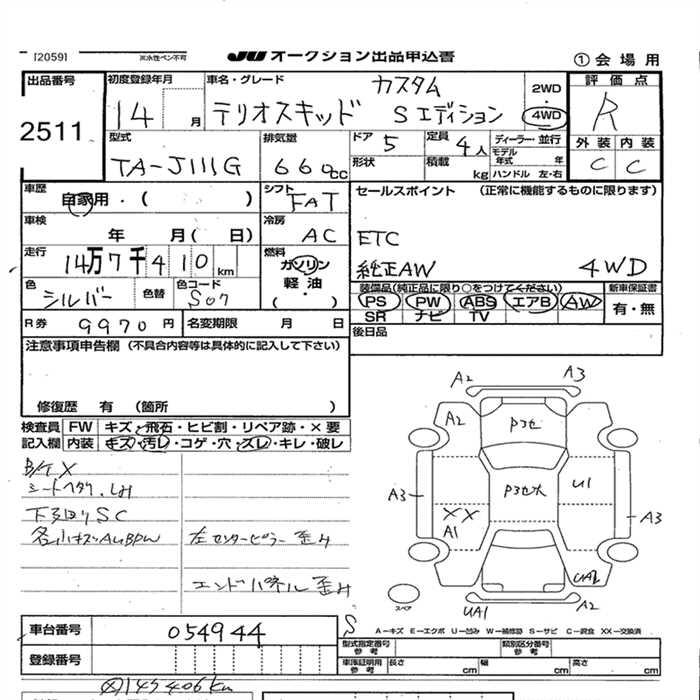 [2059]
※水性ペン不可
JU オークション出品申込書
① 会場用
出品番号
2511
初度登録年月
14 月
車名・グレード
カスタム
テリオスキッド Sエディション
2WD
4WD
評価点
R
外装 内装
C C
型式
TA-J111G
排気量
660cc
ドア 5
形状
定員 4人
積載 kg
ディーラー・並行
モデル年式 年
ハンドル 左・右
車歴
自家用・( )
シフト
FAT
車検
年 月( 日)
冷房
AC
走行
14万7千410km
燃料
ガソリン
軽油
( )
色
シルバー
色替
色コード
S07
R券 9970円
名変期限 月 日
セールスポイント (正常に機能するものに限ります)
ETC
純正AW 4WD
装備品(純正品に限り○をつけてください)
PS PW ABS エアB AW
SR ナビ TV
新車保証書
有・無
後日品
注意事項申告欄 (不具合内容等は具体的に記入して下さい)
修復歴 有 (箇所 )
検査員記入欄
FW キズ・飛石・ヒビ割・リペア跡・×要
内装 キズ・汚レ・コゲ・穴・スレ・キレ・破レ
シートヘタリ
下廻りSC
左センターピラー歪み
エンドパネル歪み
A2 A3
A2 Pヨセ
A3 Pヨセ大 U1
XX
A1
A3
UA2
UA1 A2
スペア
S
A-キズ E-エクボ U-凹み W-補修跡 S-サビ C-腐食 XX-交換済
車台番号 054944
登録番号
型式指定番号
参考
類別区分番号
参考
車庫証明用
参考
長さ cm
幅 cm
高さ cm
147406km